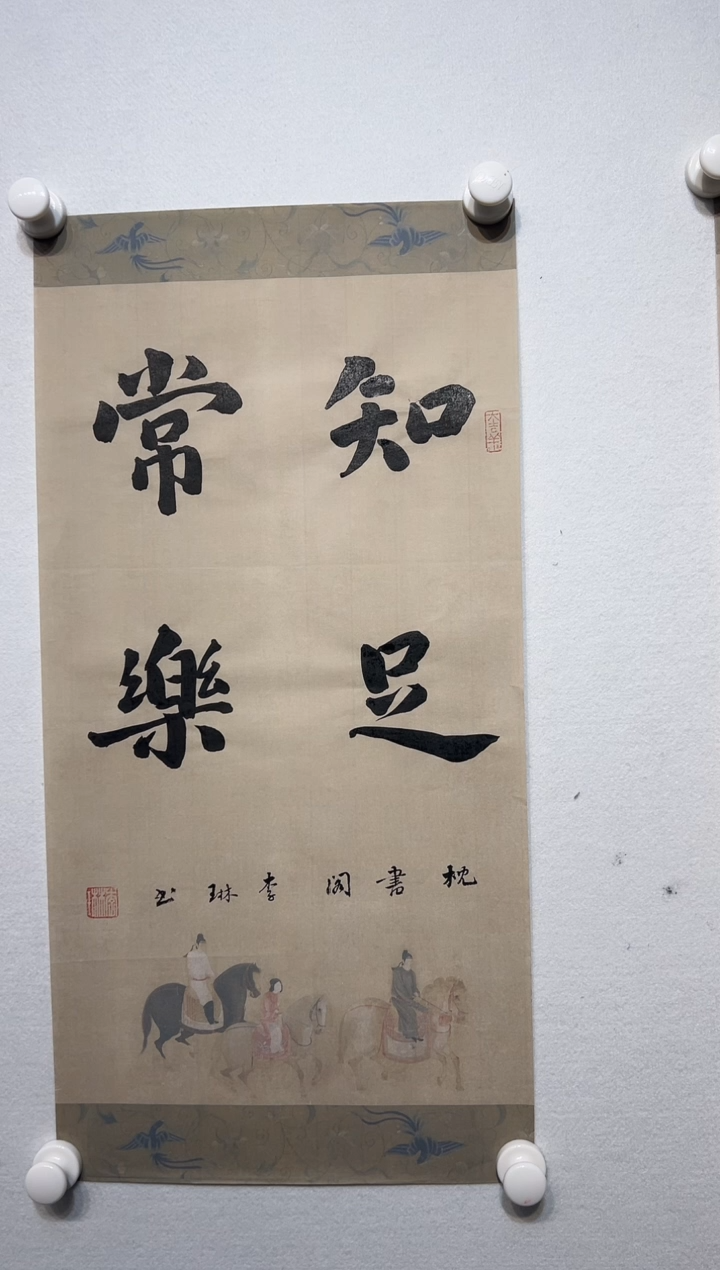 知足
常樂
枕書閣李琳书